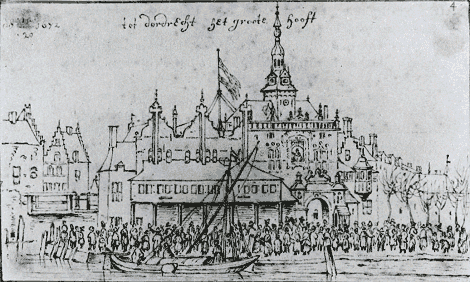 tot dordrecht het groote hooft 4
1672
20